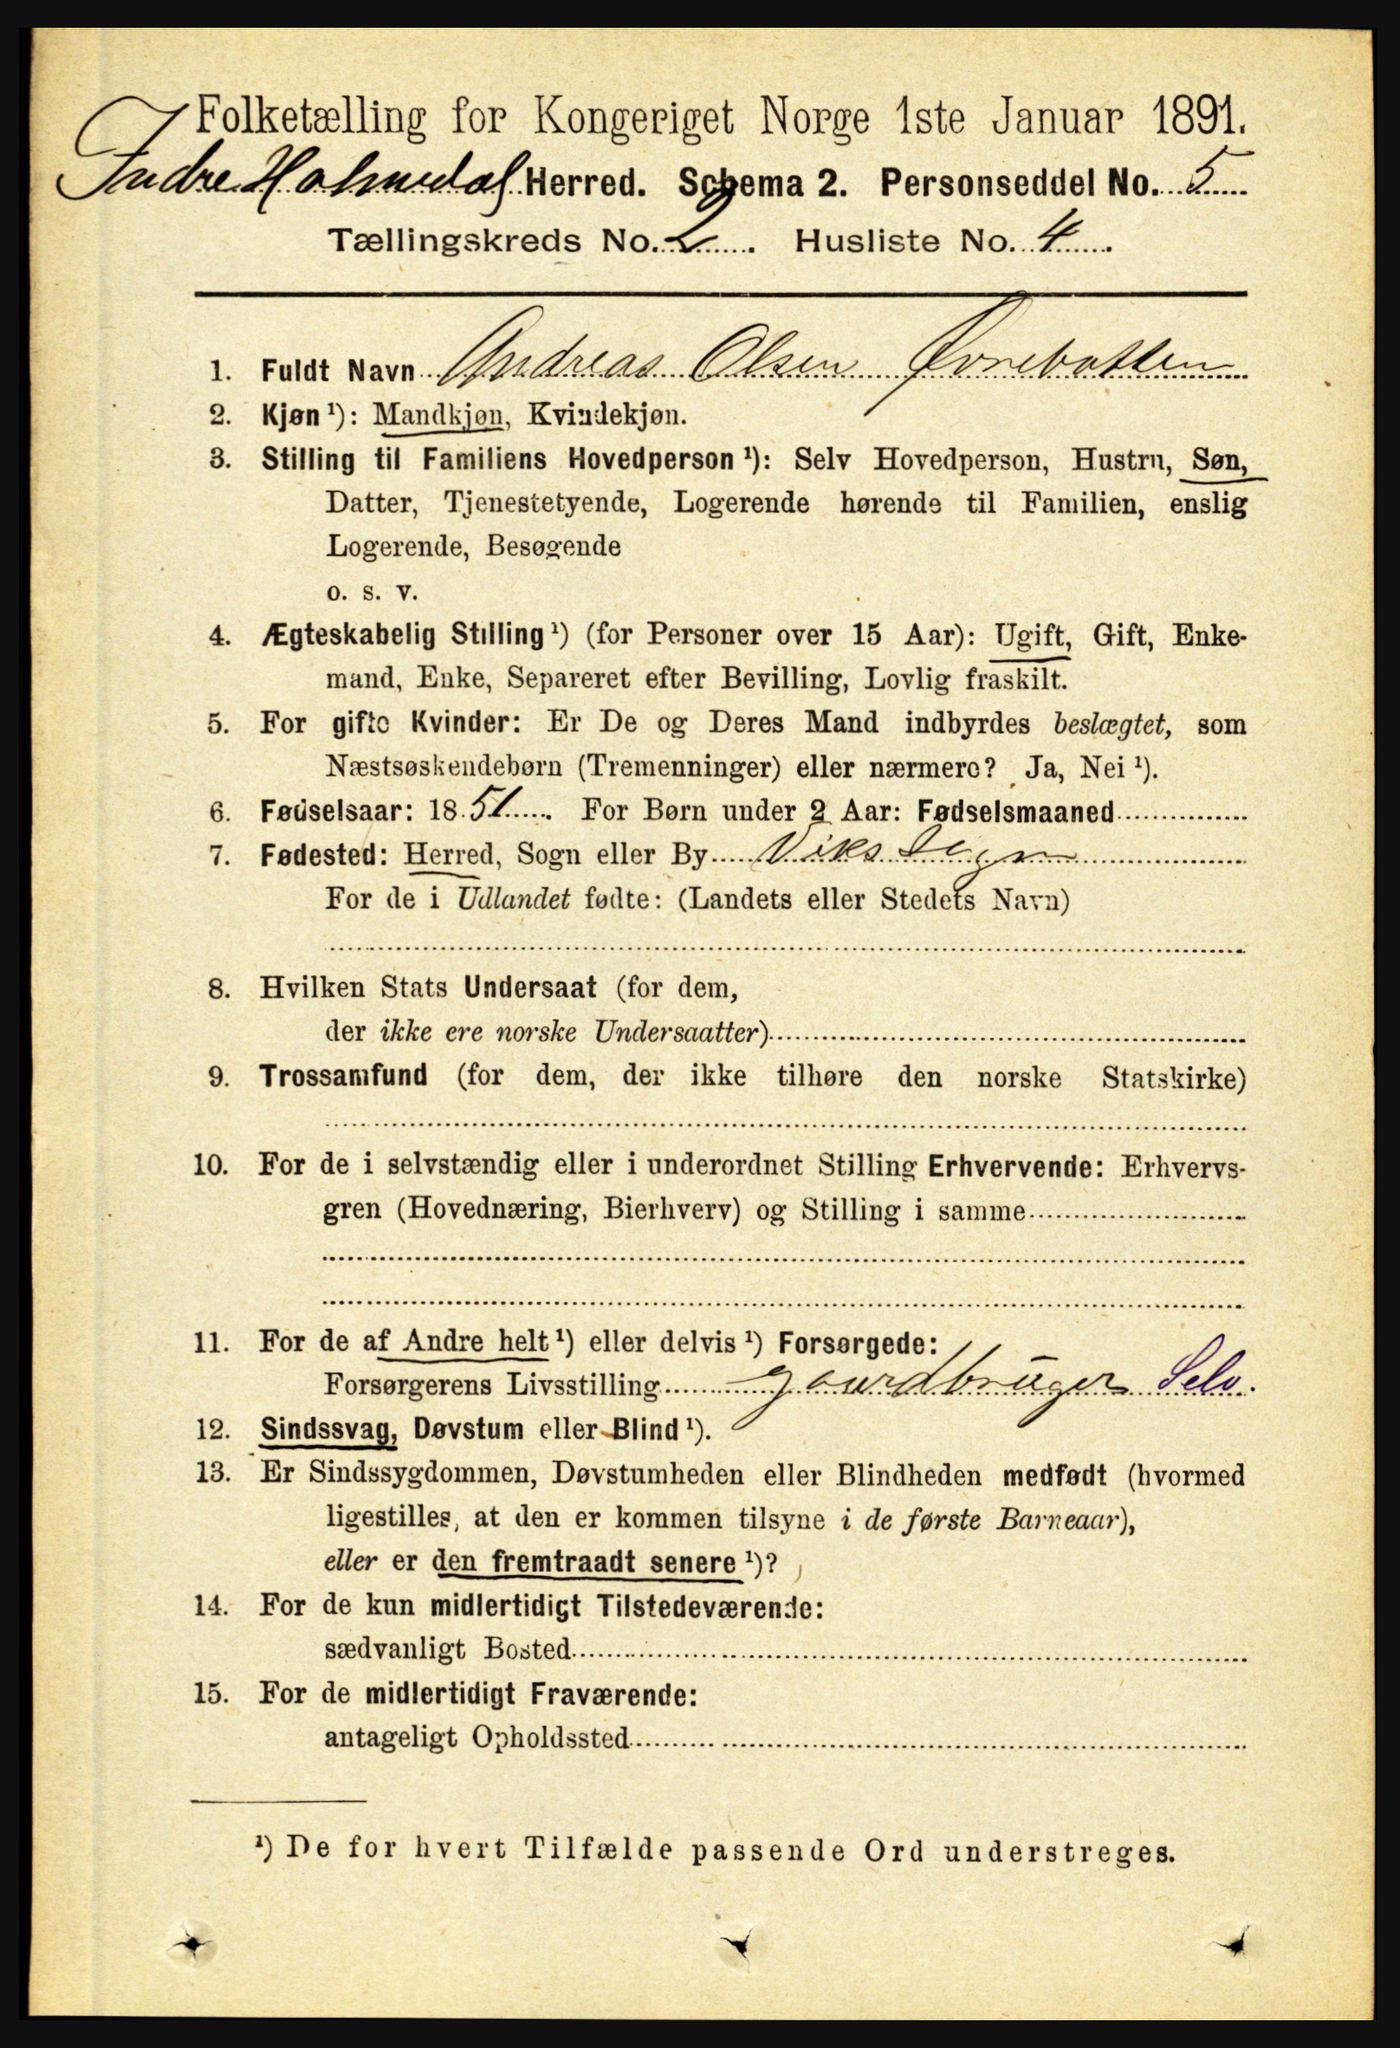 Folketælling for Kongeriget Norge 1ste Januar 1891.
Indre Holmedal Herred. Schema 2. Personseddel No. 5
Tællingskreds No. 2. Husliste No. 4.
1. Fuldt Navn Andreas Olsen Øvrebotten
2. Kjøn ¹): Mandkjøn, Kvindekjøn.
3. Stilling til Familiens Hovedperson ¹): Selv Hovedperson, Hustru, Søn,
Datter, Tjenestetyende, Logerende hørende til Familien, enslig
Logerende, Besøgende
o. s. v.
4. Ægteskabelig Stilling ¹) (for Personer over 15 Aar): Ugift, Gift, Enke-
mand, Enke, Separeret efter Bevilling, Lovlig fraskilt.
5. For gifte Kvinder: Er De og Deres Mand indbyrdes beslægtet, som
Næstsøskendebørn (Tremenninger) eller nærmere? Ja, Nei ¹).
6. Fødselsaar: 1851. For Børn under 2 Aar: Fødselsmaaned
7. Fødested: Herred, Sogn eller By Viks Sogn
For de i Udlandet fødte: (Landets eller Stedets Navn)
8. Hvilken Stats Undersaat (for dem,
der ikke ere norske Undersaatter)
9. Trossamfund (for dem, der ikke tilhøre den norske Statskirke)
10. For de i selvstændig eller i underordnet Stilling Erhvervende: Erhvervs-
gren (Hovednæring, Bierhverv) og Stilling i samme
11. For de af Andre helt ¹) eller delvis ¹) Forsørgede:
Forsørgerens Livsstilling gaardbruger Selv.
12. Sindssvag, Døvstum eller Blind ¹).
13. Er Sindssygdommen, Døvstumheden eller Blindheden medfødt (hvormed
ligestilles, at den er kommen tilsyne i de første Barneaar),
eller er den fremtraadt senere ¹)?
14. For de kun midlertidigt Tilstedeværende:
sædvanligt Bosted
15. For de midlertidigt Fraværende:
antageligt Opholdssted
¹) De for hvert Tilfælde passende Ord understreges.